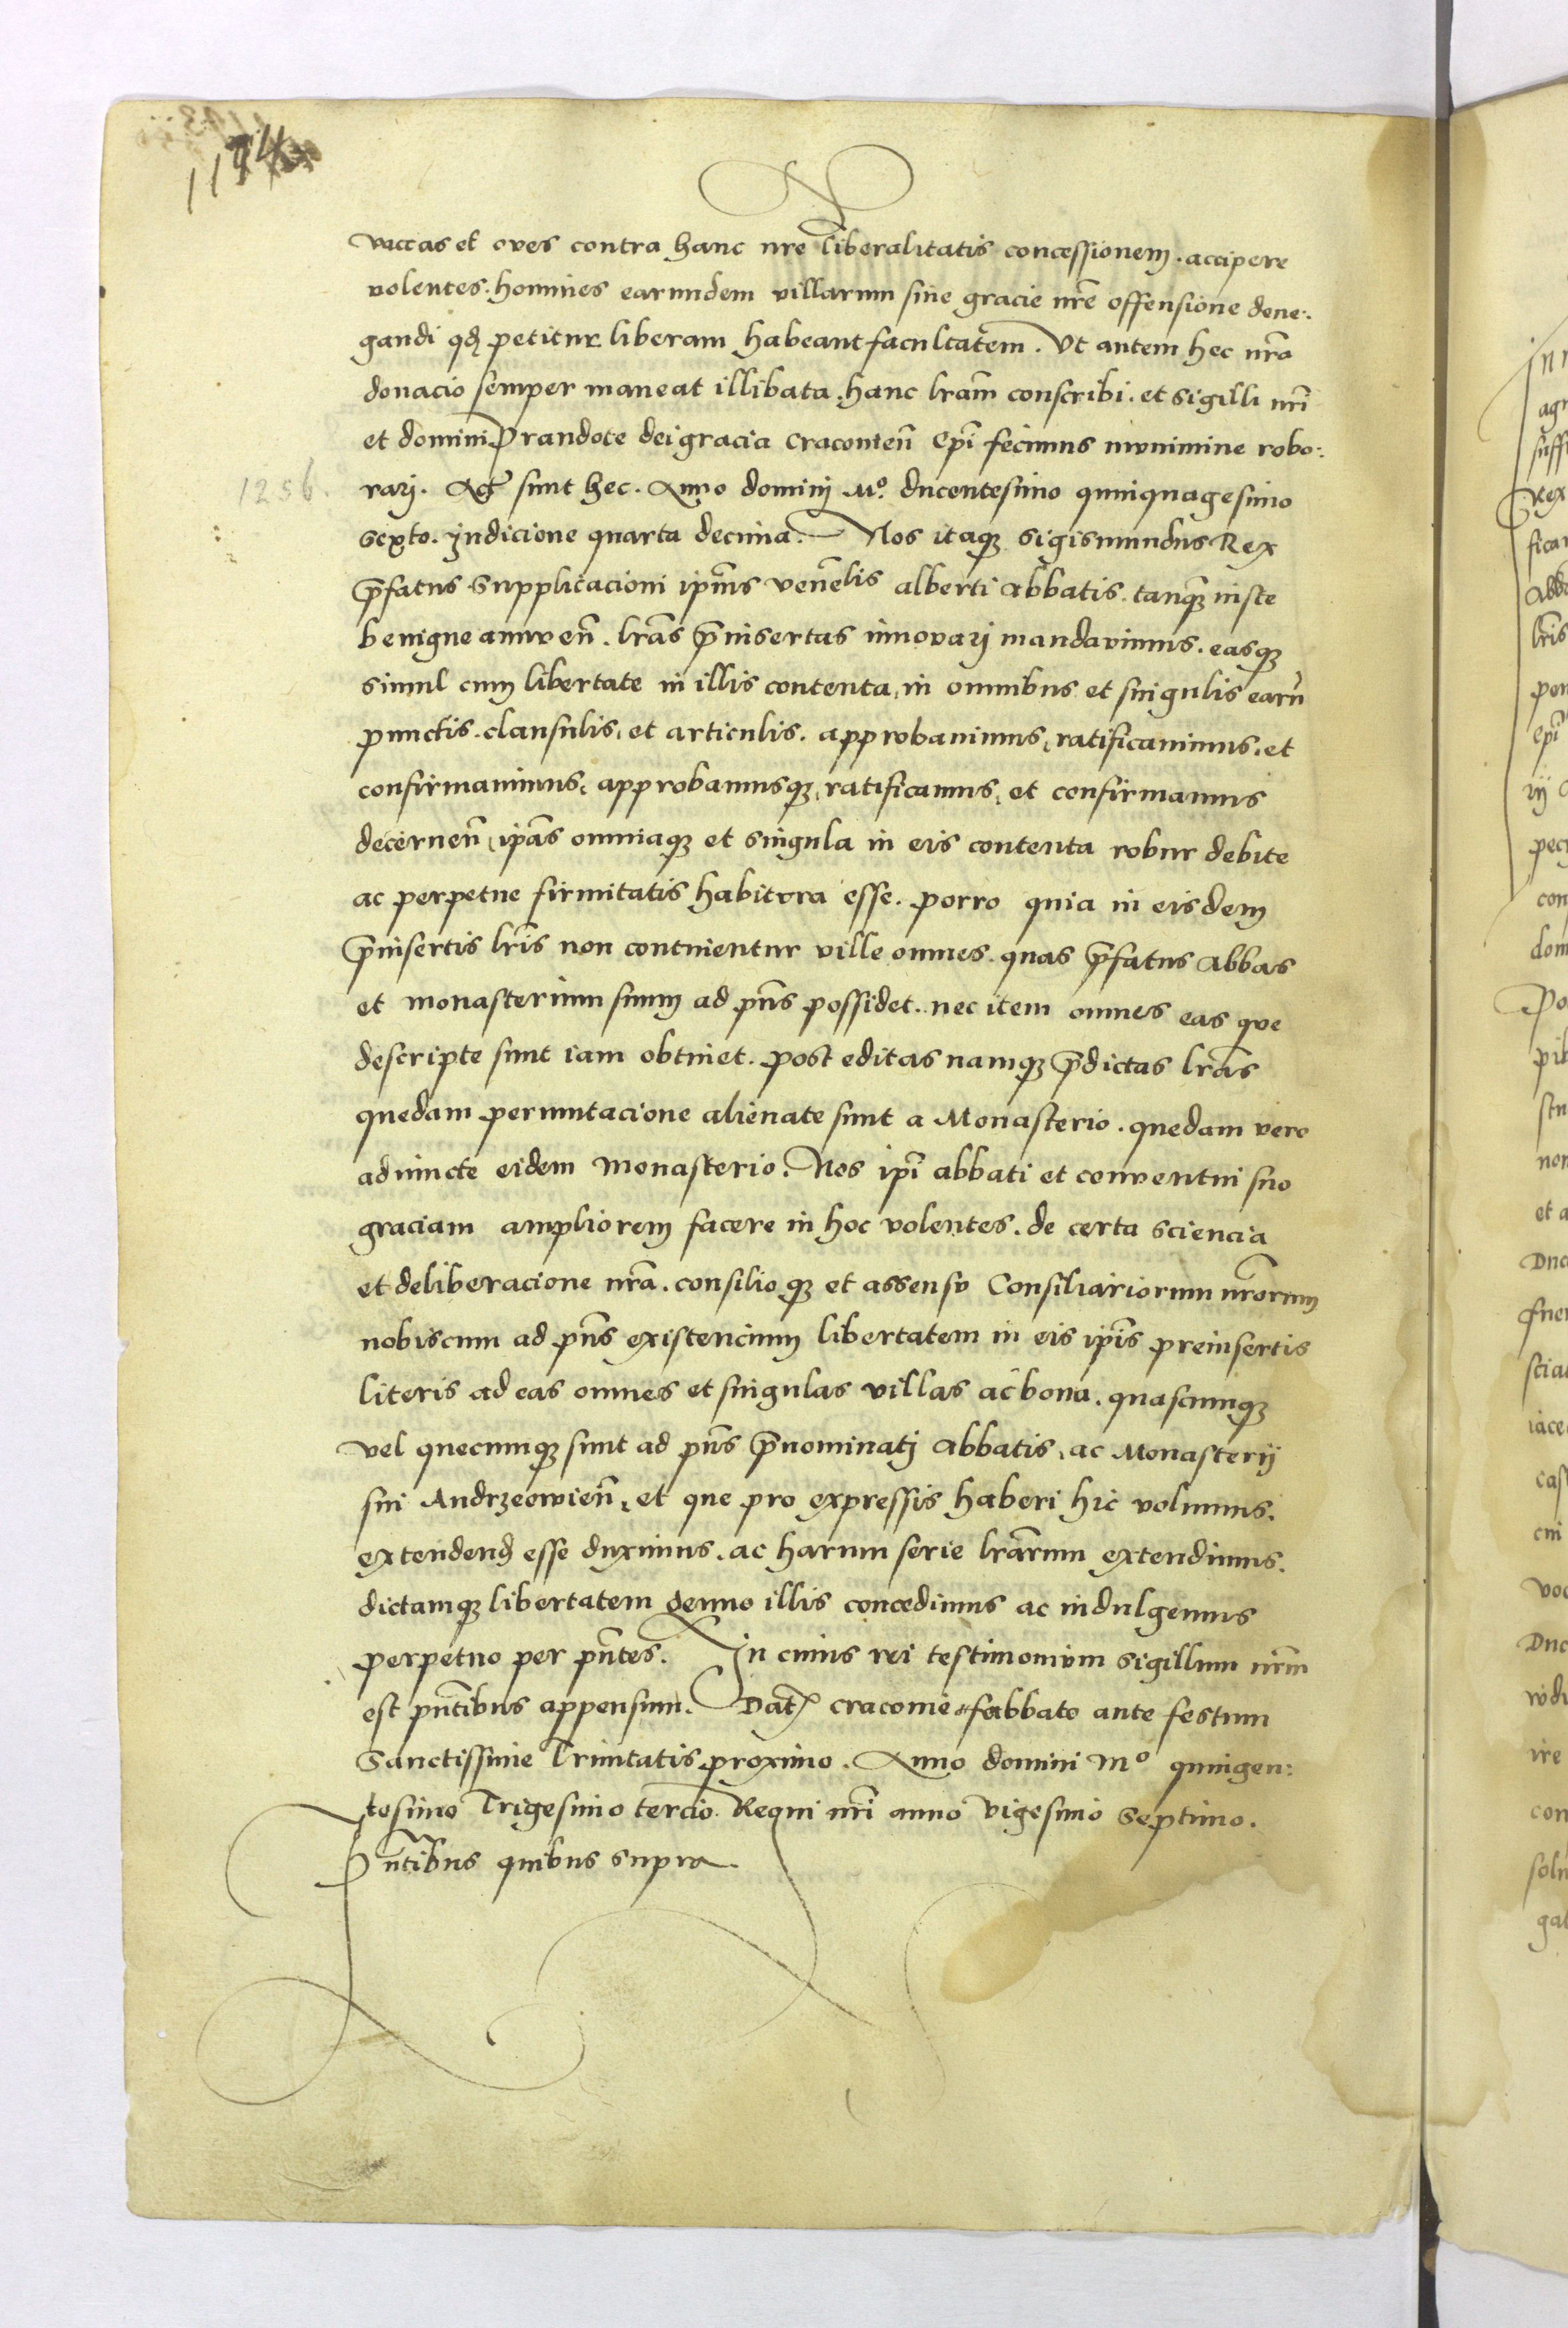 vaccas et oves contra hanc nr̃e liberalitatis concessionem . accipere
volentes . homines earundem villarum sine gracie nr̃e offensione dene:
gandi qď petitur liberam habeant facultatem . Ut autem hec nr̃a
donacio semper maneat illibata . hanc lr̃am conscribi . et sigilli nr̃i
et domini Prandote dei gracia Cracovień Epĩ fecimus munimine robo:
1256.
rarj . Act̃ sunt hec . Anno dominj Mº. ducentesimo quinquagesimo
sexto . Indicione quarta decima . Nos itaqꝫ Sigismundus Rex
p̃fatus Supplicacioni ipĩus veñelis alberti Abbatis . tanqꝫ iuste
benigne annueñ . lr̃as p̃insertas innovarj mandavimus . easqꝫ
simul cum libertate in illis contenta, in omnibus et singulis earũ
punctis . clausulis, et articulis . approbavimus, ratificavimus . et
confirmavimus, approbamusqꝫ, ratificamus, et confirmamus
decerneñ, ip̃as omniaqꝫ et singula in eis contenta robur debite
ac perpetue firmitatis habitura esse . porro quia in eisdem
p̃insertis lr̃is non continentur ville omnes . quas p̃fatus Abbas
et monasterium suum ad pñs possidet . nec item omnes eas que
descripte sunt iam obtinet . post editas namqꝫ p̃dictas lr̃as
quedam permutacione alienate sunt a Monasterio . quedam vero
adiuncte eidem monasterio . Nos ip̃i abbati et conventui suo
graciam ampliorem facere in hoc volentes . de certa sciencia
et deliberacione nr̃a . consilio qꝫ et assensu Consiliariorum nr̃orum
nobiscum ad pñs existencium libertatem in eis ip̃is preinsertis
literis ad eas omnes et singulas villas ac bona . quascunqꝫ
vel quecunqꝫ sunt ad pñs p̃nominatj Abbatis, ac Monasterij
sui Andrzeowieñ, et que pro expressis haberi hic volumus .
extendenď esse duximus . ac harum serie lr̃arum extendimus .
dictamqꝫ libertatem denuo illis concedimus ac indulgemus
perpetuo per pñtes . In cuius rei testimonium sigillum nr̃m
est pñtibus appensum . Dat̃ cracovie sabbato ante festum
Sanctissime Trinitatis proximo . Anno domini Mº quingen:
tesimo Trigesimo tercio . Regni nr̃i anno vigesimo Septimo .
Pñtibus quibus supra .